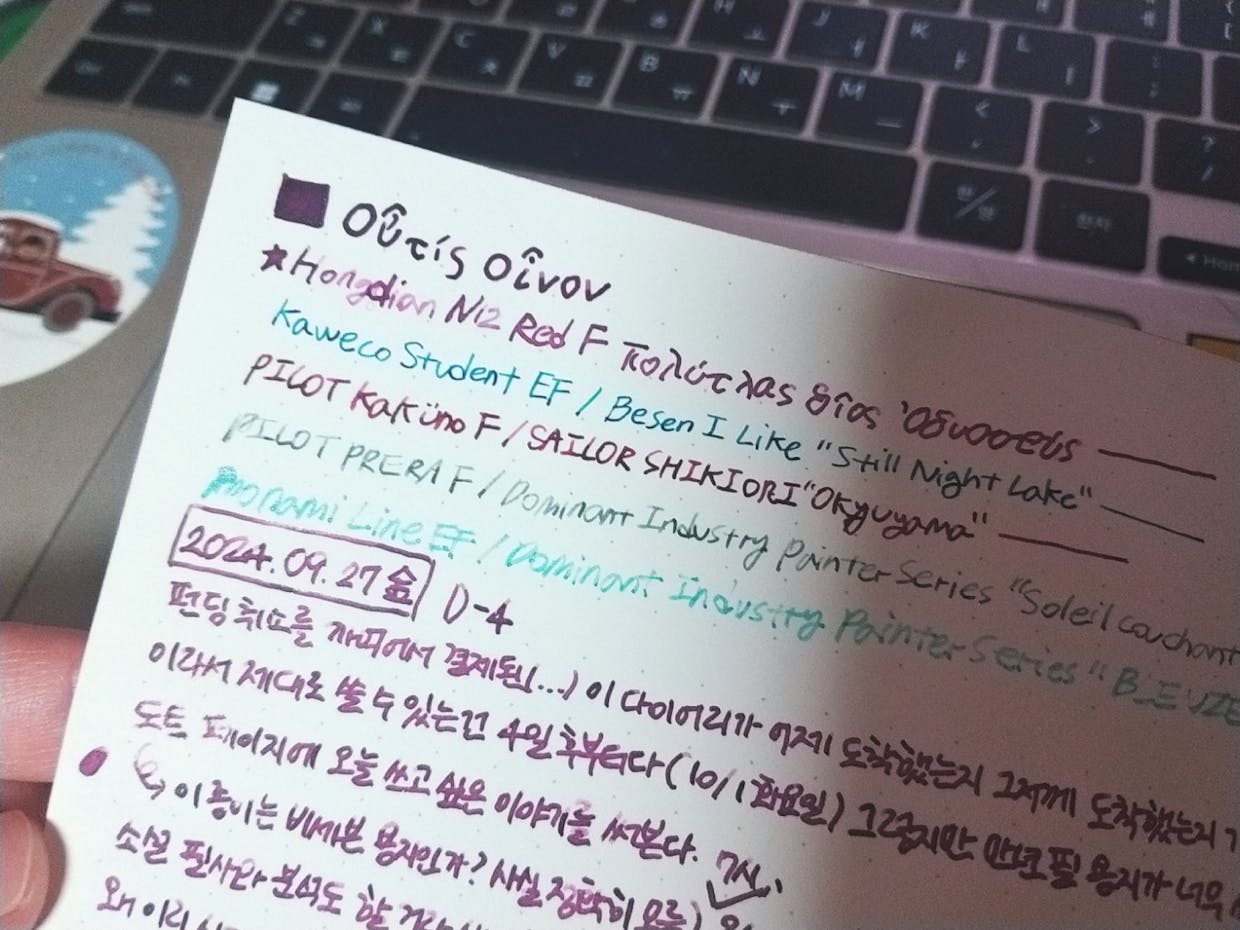 Z X C V B N M
H J K L
한/영
한자
Home
Οὖτίς οἶνον
★Hongdian N12 Red F πολύτλας δῖος Ὀδυσσεύς
Kaweco Student EF / Besen I Like "Still Night Lake"
PILOT Kaküno F / SAILOR SHIKIORI "Okyuyama"
PILOT PRERA F / Dominant Industry Painter Series "Soleil couchant
Monami Line EF / Dominant Industry Painter Series "B_EUZE
2024.09.27 金 D-4
펀딩 취소를 까먹어서 결제된(...) 이 다이어리가 어제 도착했는지 그저께 도착했는지
이라서 제대로 쓸 수 있는건 4일 후부터다 (10/1 화요일) 그렇지만 만년필 용지가 너무
도트 페이지에 오늘 쓰고 싶은 이야기를 써본다.
↳ 이 종이는 비세븐 용지인가? 사실 정확히 모름) 7시,
소설 필사와 분석도 할
왜 이리